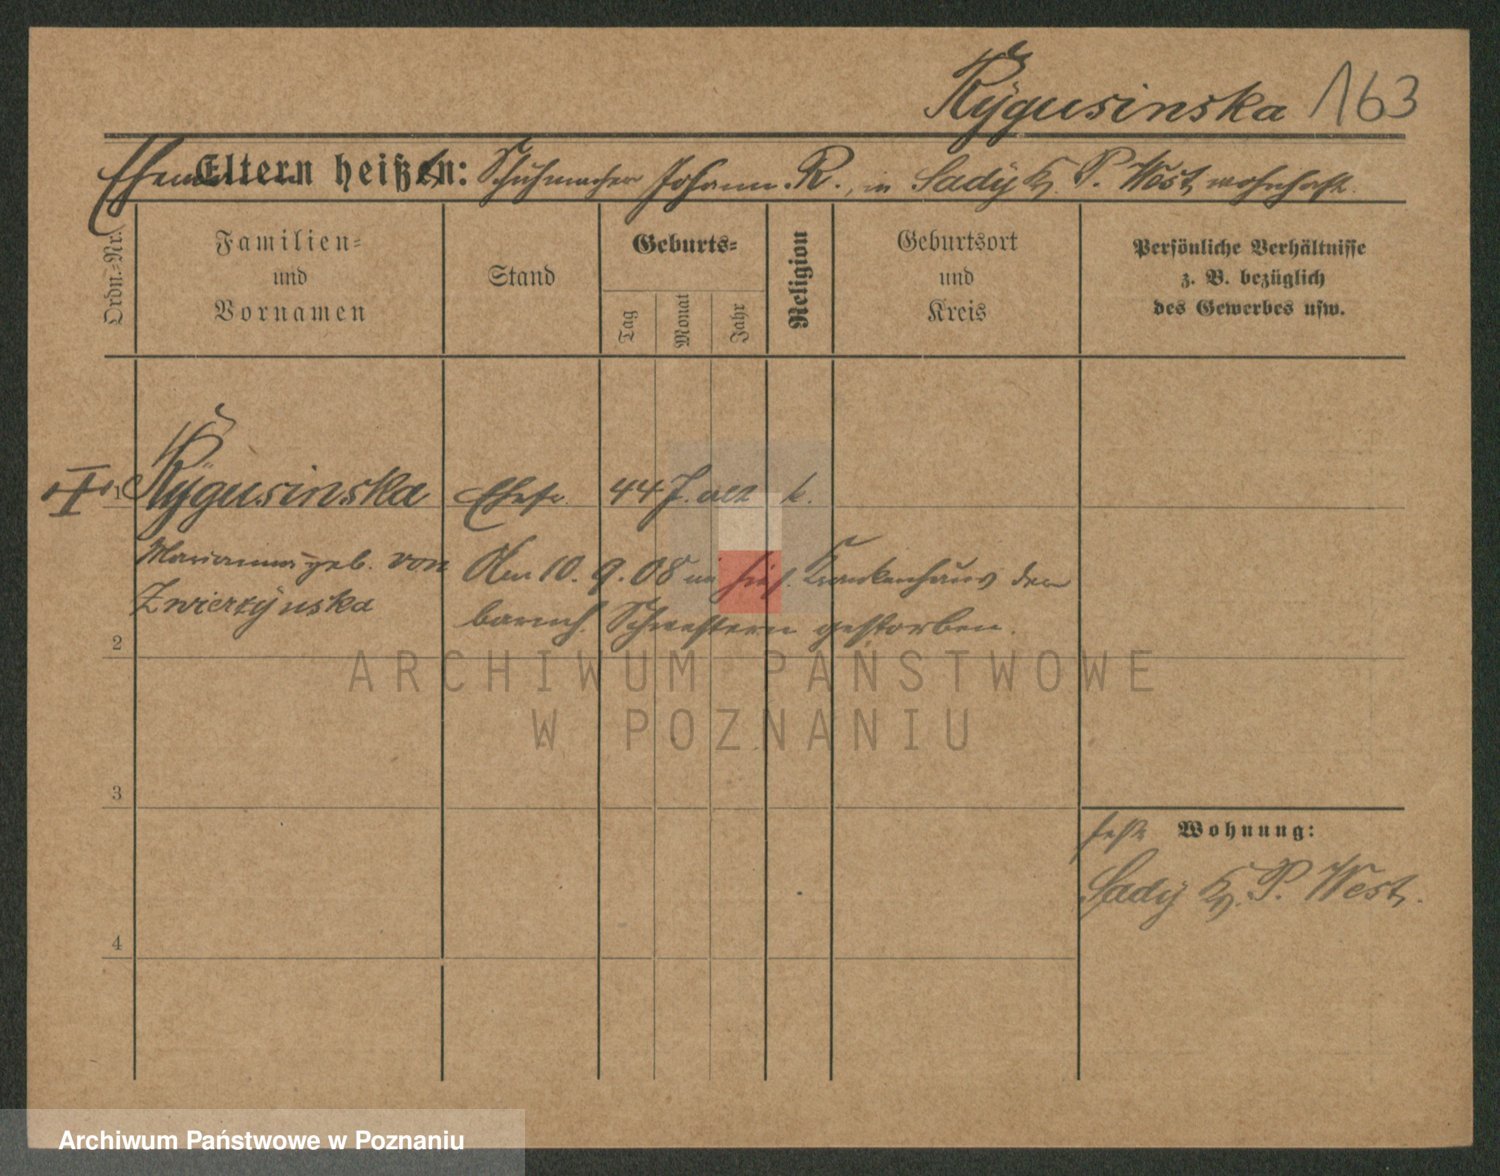 Rÿgusinska 163
Eltern heißen: Schuhmacher Johann R., in Sady Kr. P. West wohnhaft.
Ordn.-Nr.
Familien-
und
Vornamen
Stand
Geburts-
Tag
Monat
Jahr
Religion
Geburtsort
und
Kreis
Persönliche Verhältnisse
z. B. bezüglich
des Gewerbes usw.
1 Rÿgusinska Ehefr. 44 J. alt k.
Marianna geb. von
Zwierzÿnska
Am 10. 9. 08 im hies. Krankenhaus der
barmh. Schwestern gestorben.
2
ARCHIWUM PAŃSTWOWE
W POZNANIU
3
Wohnung:
Sadÿ Kr. P. West.
4
Archiwum Państwowe w Poznaniu